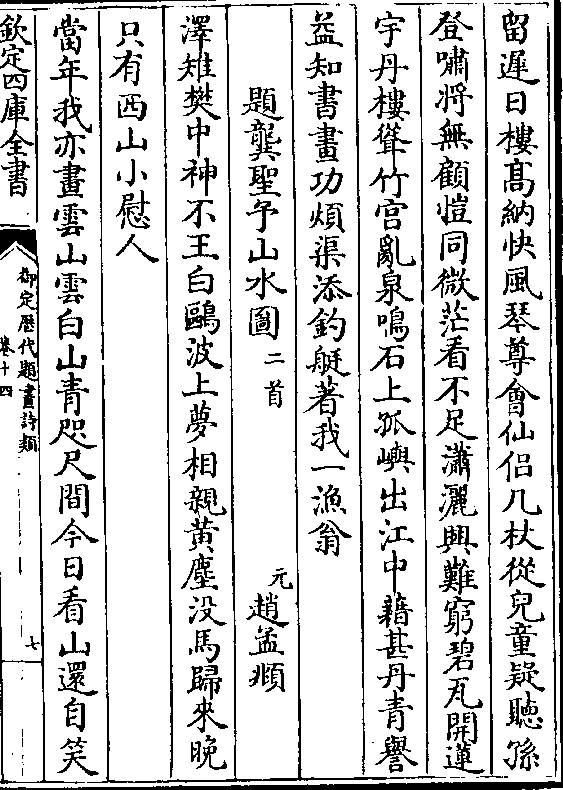 留遲日樓髙納快風琴尊會仙侣几杖從兒童疑聽孫
登嘯將無顧愷同微茫看不足瀟灑興難窮碧瓦開蓮
宇丹樓聳竹宫亂泉鳴石上孤嶼出江中藉甚丹青譽
益知書畫功煩渠添釣艇著我一漁翁
題龔聖予山水圖二首 元趙孟頫
澤雉樊中神不王白鷗波上夢相親黄塵没馬歸來晚
只有西山小慰人
當年我亦畫雲山雲白山青咫尺間今日看山還自笑
欽定四庫全書 御定歴代題畫詩類 卷十四 七